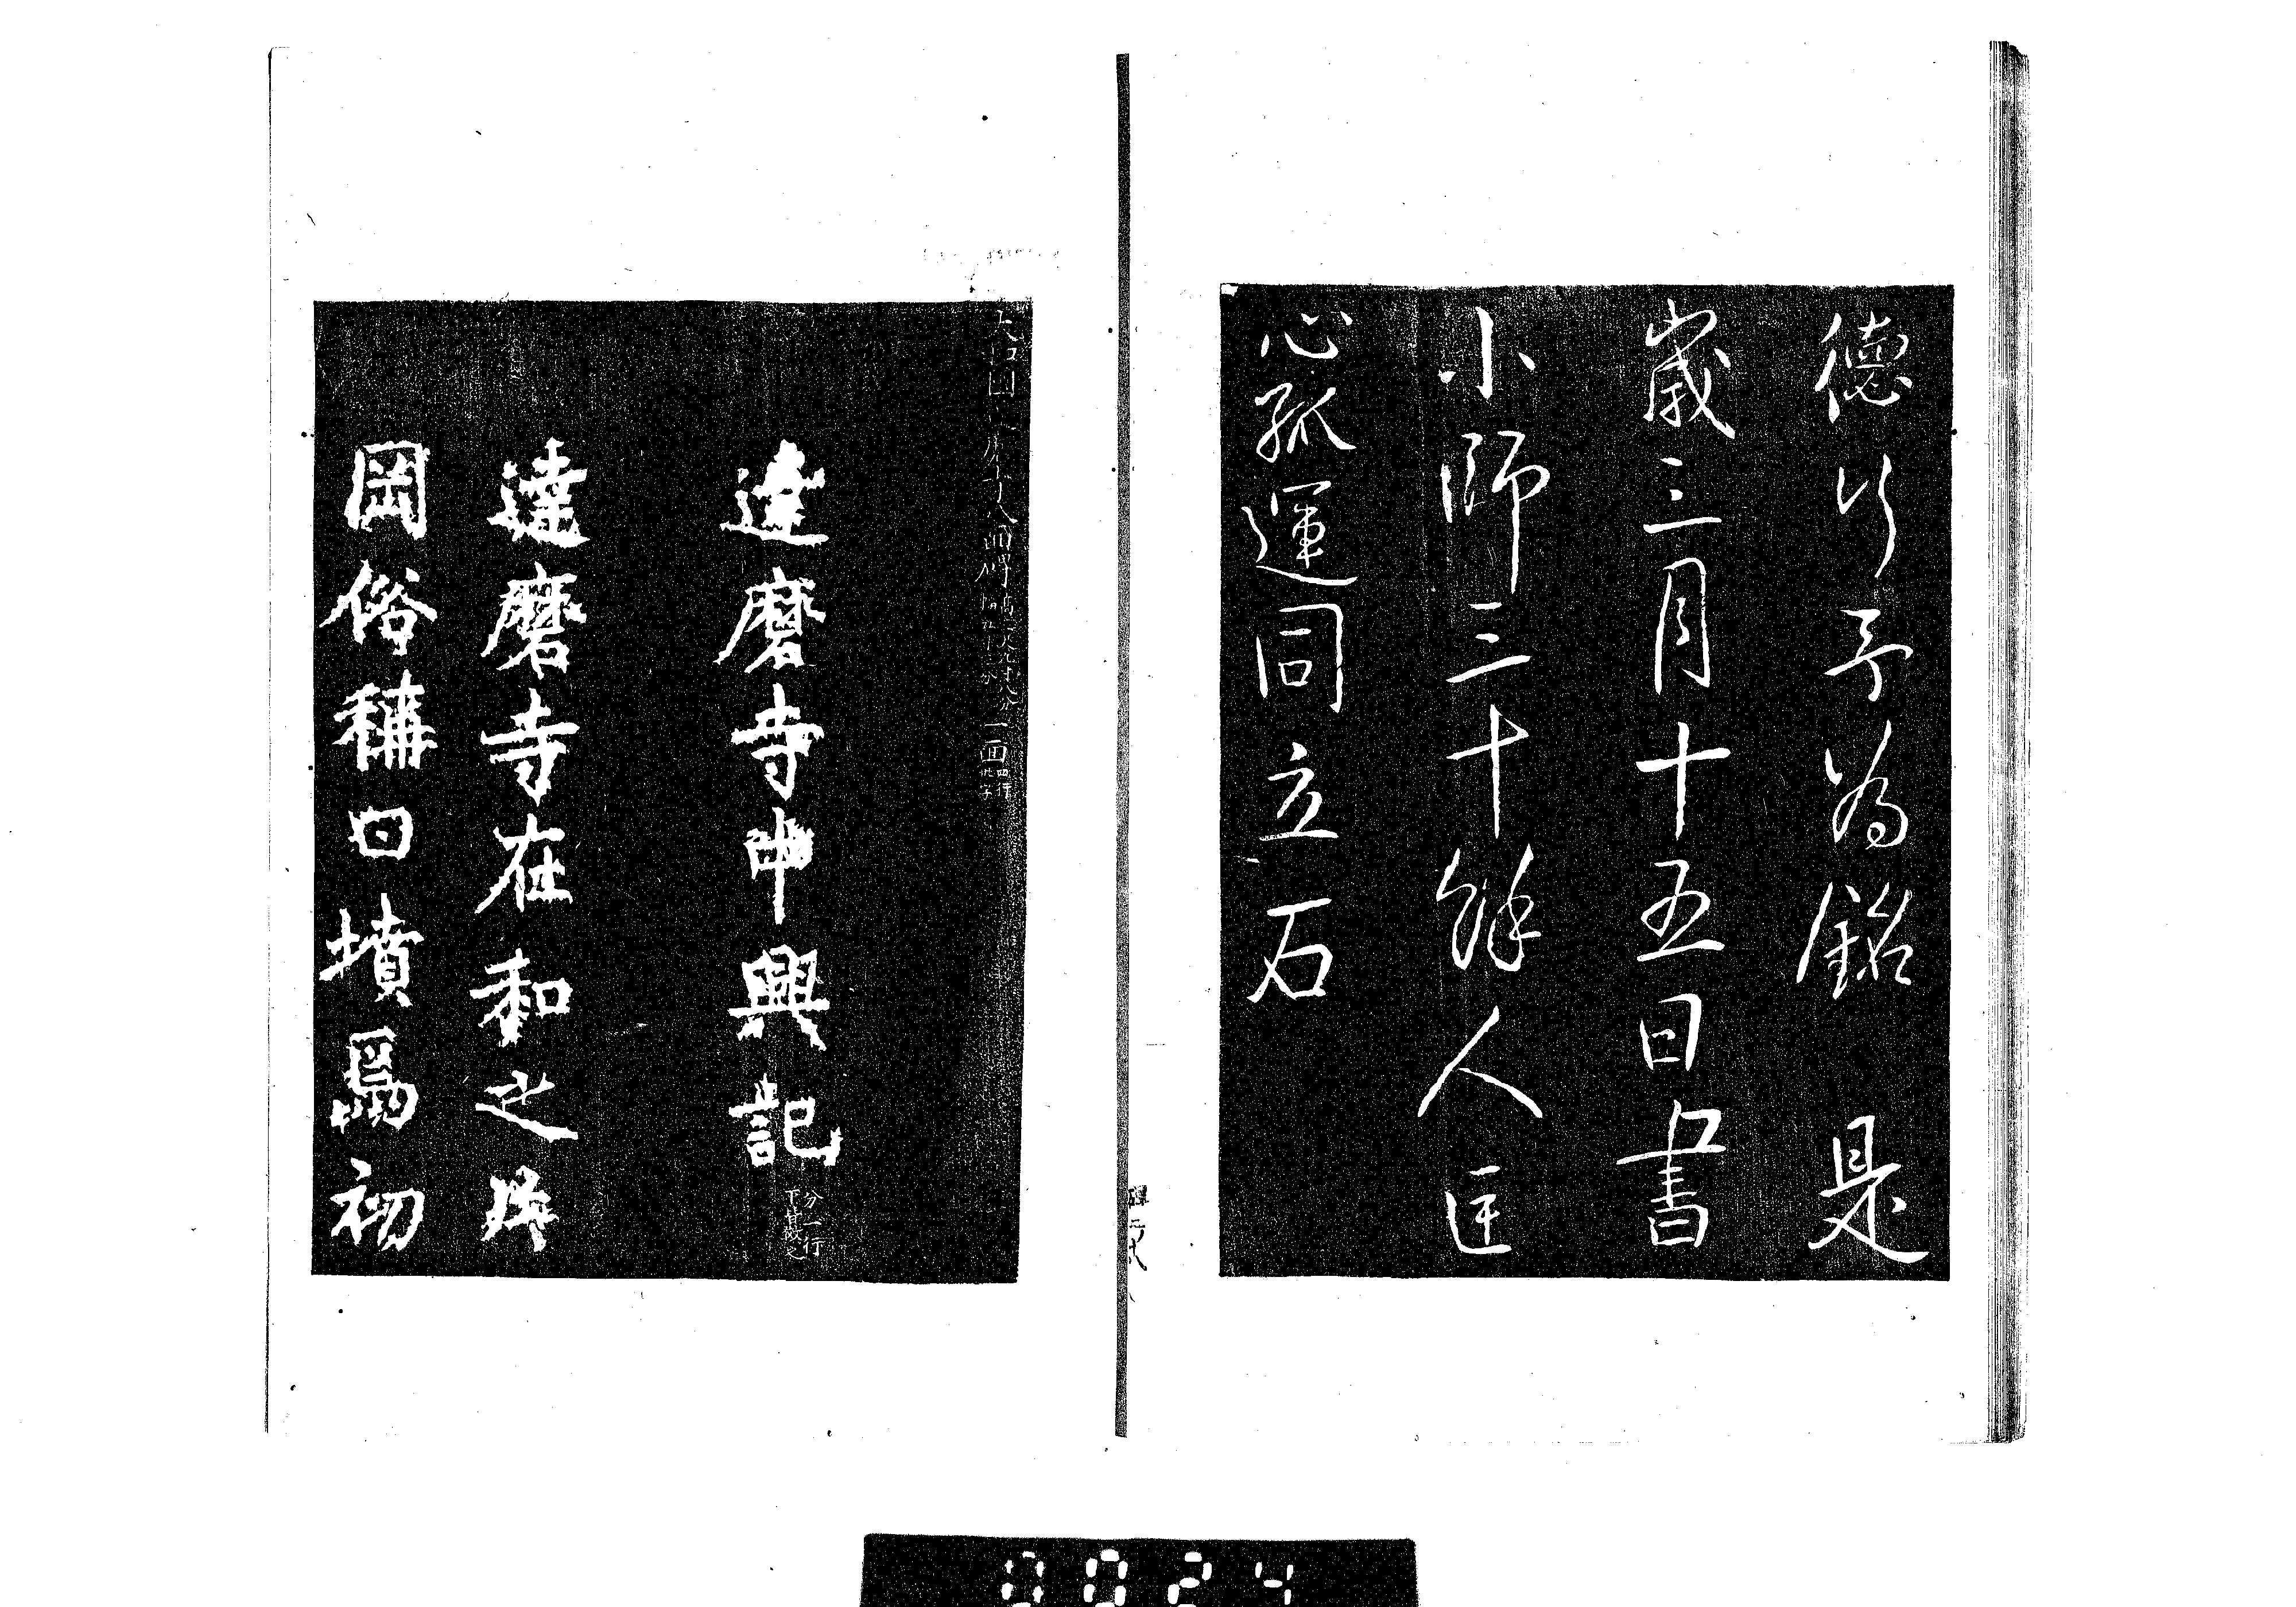 德行予為銘 是
歲三月十五日書
小師三十餘人匡
心孤運同立石
達磨寺中興記
分一行
下其欵之
達磨寺在和之片
岡俗稱曰墳爲初
0024